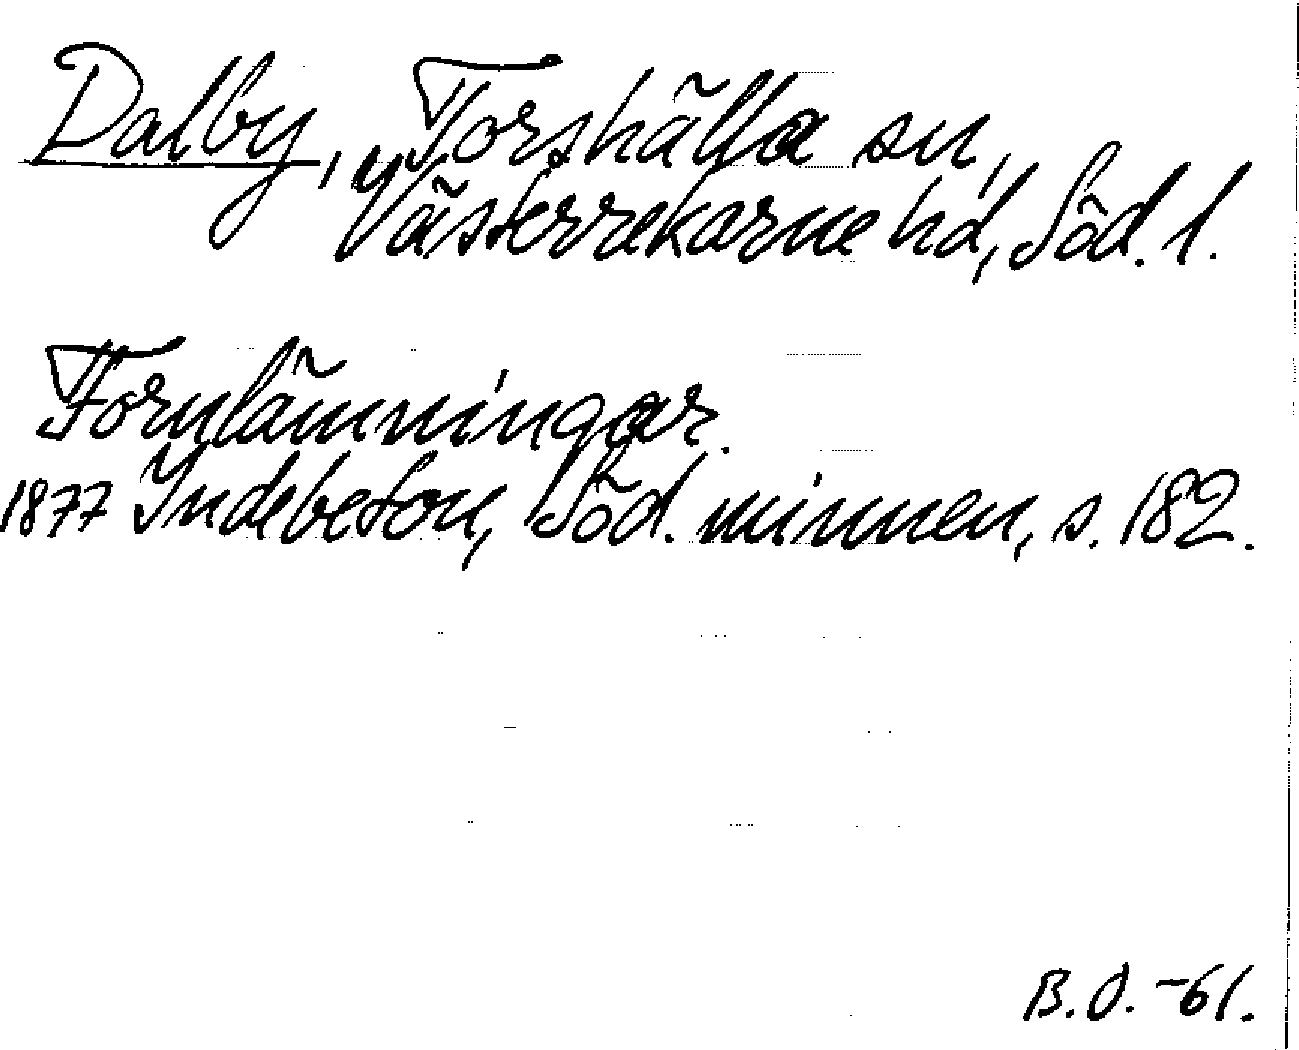 Dalby, Torshälla sn,
Västerrekarne hd, Söd. l.
Fornlämningar.
1877 Indebetou, Söd. minnen, s. 182.
B.O. -61.